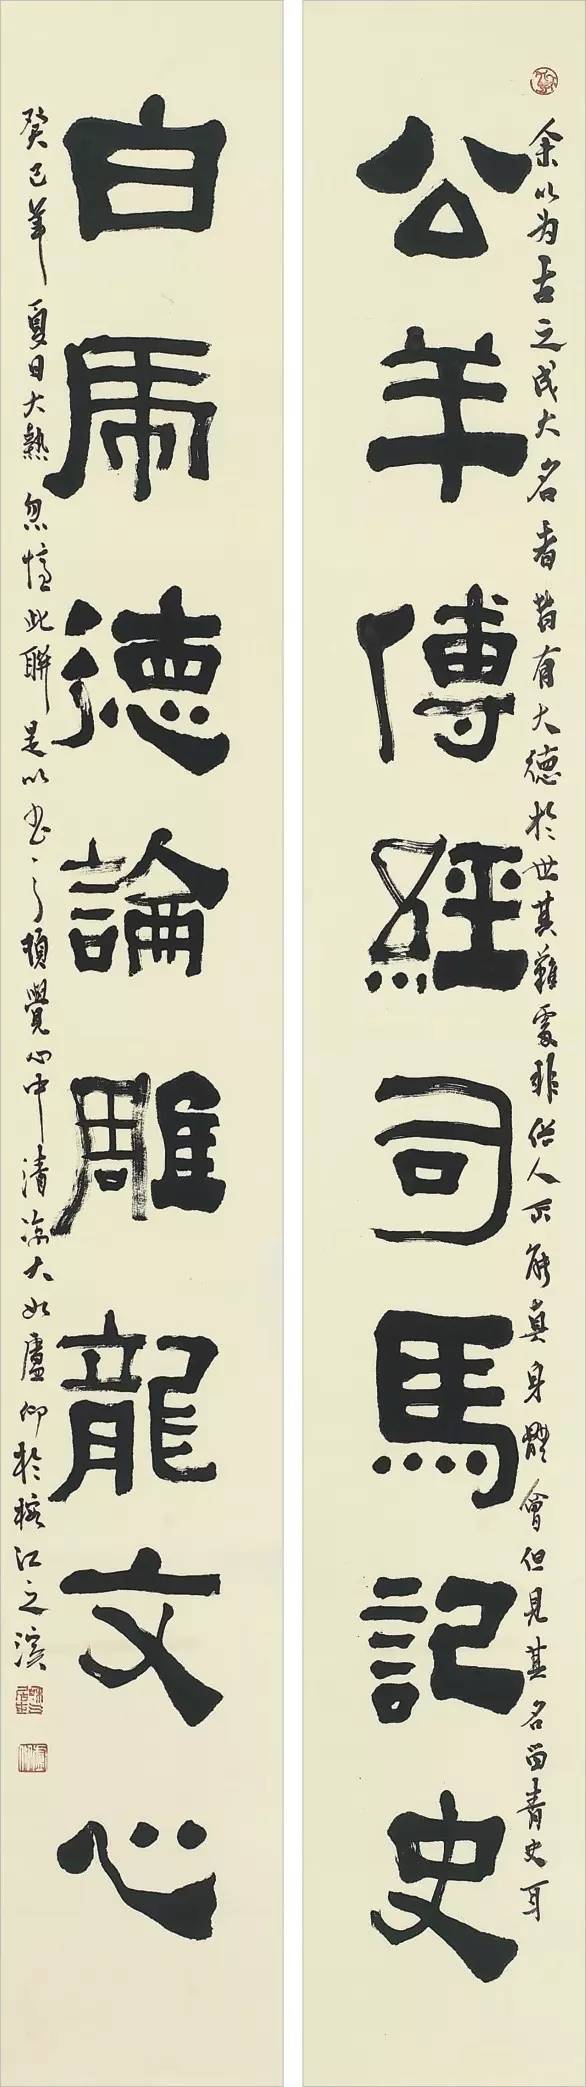 余以为古之成大名者皆有大德於世其難處非俗人所能真身體會但見其名留青史耳
公羊傳經司馬記史
白虎德論雕龍文心
癸巳年夏日大熱忽憶此聯是以書之頓覺心中清涼大如盧仰於榕江之濱